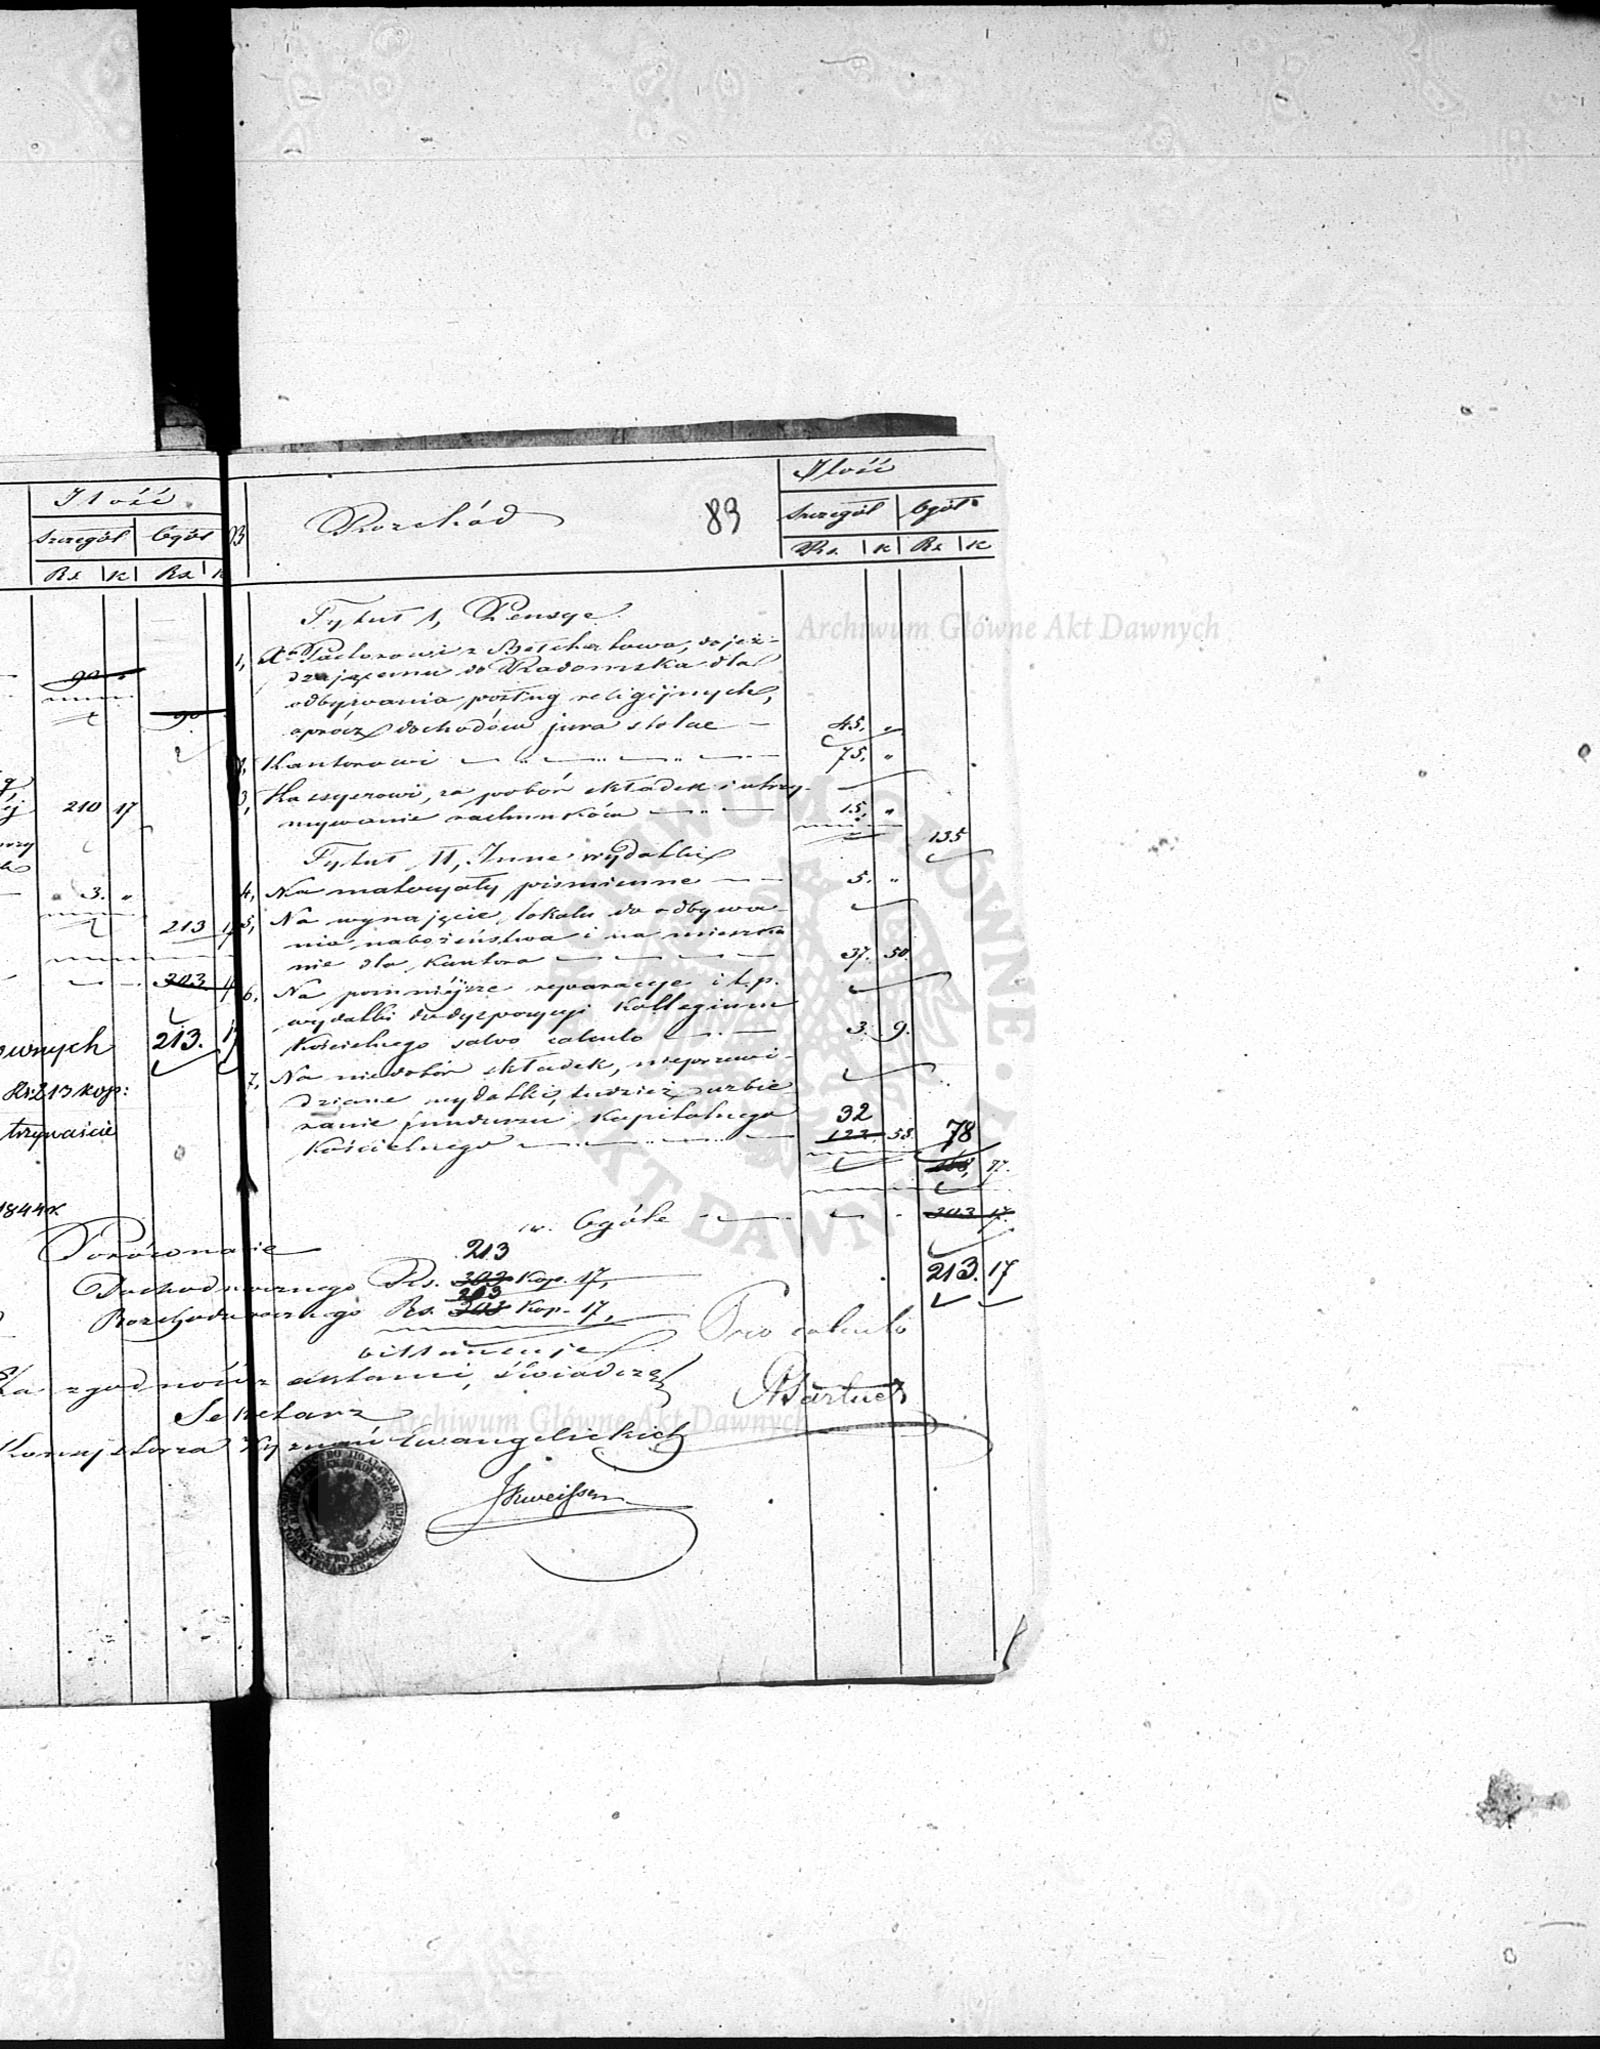 Ilość
szczegół ogół
Rs. k Rs. k
90
90
210 17
3. "
213 17
303 17
213. 17
Rs. 213 kop:
trzynaście
1844 r.
Rozchód
83
Ilość
szczegół Ogół
Rs. k Rs. k
Tytuł I, Pensye.
1, Xs. Pastorowi z Bełchatowa, dojeż-
dzającemu do Radomska dla
odbywania posług religijnych,
oprócz dochodów jura stolae — 45. "
2, Kantorowi — 75. "
3, Kassyerowi, za pobór składek i utrzy-
mywanie rachunków — 15. "
135
Tytuł II, Inne wydatki
4, Na materyały piśmienne — 5. "
5, Na wynajęcie lokalu do odbywa-
nia nabożeństwa i na mieszka
nie dla Kantora — 37. 50.
6, Na pomniejsze reparacye i t.p.
wydatki do dyspozycyi Kollegium
Kościelnego salvo calculo — 3. 9.
7, Na niedobór składek, nieprzewi-
dziane wydatki, tudzież uzbie
ranie funduszu Kapitalnego
Kościelnego — 32
122. 58. 78
168, 17.
w Ogóle — 303 17.
213. 17
Porównanie
213
Dochodu rocznego Rs. 303 Kop. 17,
213
Rozchodu rocznego Rs. 303 Kop. 17,
Pro calculo
Za zgodność z aktami, świadczę
Sekretarz
Konsystorza Wyznań Ewangelickich
Archiwum Główne Akt Dawnych
Archiwum Główne Akt Dawnych
ARCHIWUM GŁÓWNE AKT DAWNYCH